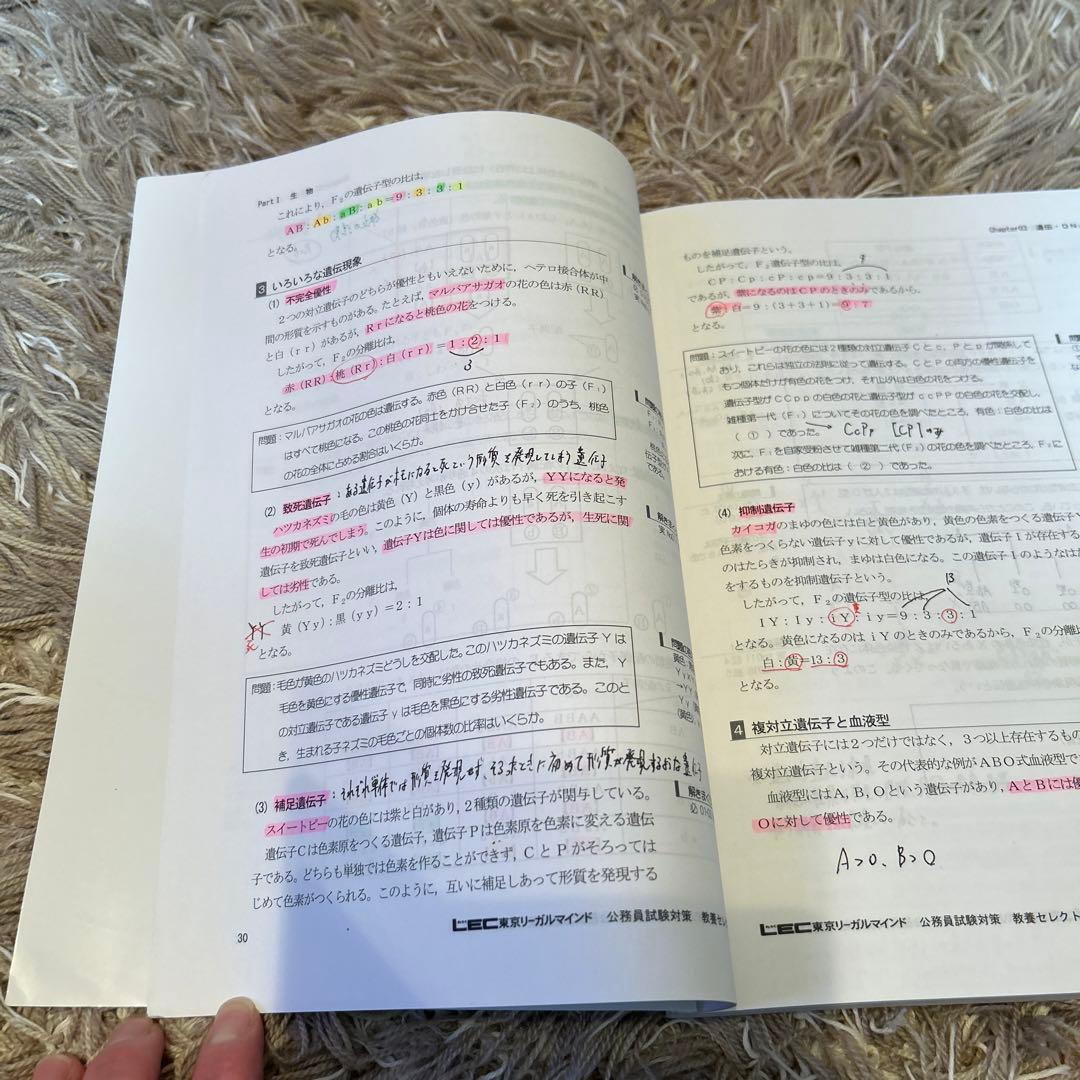 Part I 生物
これにより，F₂の遺伝子型の比は，
AB：Ab：aB：ab＝9：3：3：1
となる。
3 いろいろな遺伝現象
(1) 不完全優性
２つの対立遺伝子のどちらが優性ともいえないために，ヘテロ接合体が中
間の形質を示すものがある。たとえば，マルバアサガオの花の色は赤（RR）
と白（rr）があるが，Rrになると桃色の花をつける。
したがって，F₂の分離比は，
赤（RR）：桃（Rr）：白（rr）＝1：2：1
3
となる。
問題：マルバアサガオの花の色は遺伝する。赤色（RR）と白色（rr）の子（F₁）
はすべて桃色になる。この桃色の花同士をかけ合せた子（F₂）のうち，桃色
の花の全体に占める割合はいくらか。
(2) 致死遺伝子：ある遺伝子がホモになると死という形質を発現してしまう遺伝子
ハツカネズミの毛の色は黄色（Y）と黒色（y）があるが，YYになると発
生の初期で死んでしまう。このように，個体の寿命よりも早く死を引き起こす
遺伝子を致死遺伝子といい，遺伝子Yは色に関しては優性であるが，生死に関
しては劣性である。
したがって，F₂の分離比は，
YY
黄（Yy）：黒（yy）＝2：1
となる。
問題：毛色が黄色のハツカネズミどうしを交配した。このハツカネズミの遺伝子Yは
毛色を黄色にする優性遺伝子で，同時に劣性の致死遺伝子でもある。また，Y
の対立遺伝子である遺伝子yは毛色を黒色にする劣性遺伝子である。このと
き，生まれる子ネズミの毛色ごとの個体数の比率はいくらか。
(3) 補足遺伝子：それぞれ単体では形質を発現せず、そろったときに初めて形質が発現するような遺伝子
スイートピーの花の色には紫と白があり，2種類の遺伝子が関与している。
遺伝子Cは色素原をつくる遺伝子，遺伝子Pは色素原を色素に変える遺伝
子である。どちらも単独では色素を作ることができず，CとPがそろっては
じめて色素がつくられる。このように，互いに補足しあって形質を発現する
LEC東京リーガルマインド 公務員試験対策 教養セレ
30
Chapter03 遺伝・DN
ものを補足遺伝子という。
したがって，F₂遺伝子型の比は，
CP：Cp：cP：cp＝9：3：3：1
であるが，紫になるのはCPのときのみであるから，
紫：白＝9：(3＋3＋1)＝9：7
となる。
問題：スイートピーの花の色には２種類の対立遺伝子Cとc，Pとpが関係して
あり，これらは独立の法則に従って遺伝する。CとPの両方の優性遺伝子を
もつ個体だけが有色の花をつけ，それ以外は白色の花をつける。
遺伝子型がCCppの白色の花と遺伝子型がccPPの白色の花を交配し，
雑種第一代（F₁）についてその花の色を調べたところ，有色：白色の比は
（ ① ）であった。 → CcPp [CP]
次に，F₁を自家受粉させて雑種第二代（F₂）の花の色を調べたところ，F₂に
おける有色：白色の比は（ ② ）であった。
(4) 抑制遺伝子
カイコガのまゆの色には白と黄色があり，黄色の色素をつくる遺伝子Y
色素をつくらない遺伝子yに対して優性であるが，遺伝子Iが存在する
のはたらきが抑制され，まゆは白色になる。この遺伝子Iのようなはた
をするものを抑制遺伝子という。
13
したがって，F₂の遺伝子型の比は，
IY：Iy：iY：iy＝9：3：3：1
となる。黄色になるのはiYのときのみであるから，F₂の分離比
白：黄＝13：3
となる。
4 複対立遺伝子と血液型
対立遺伝子には２つだけではなく，３つ以上存在するもの
複対立遺伝子という。その代表的な例がABO式血液型で
血液型にはA，B，Oという遺伝子があり，AとBには優
Oに対して優性である。
A＞O、B＞O
LEC東京リーガルマインド 公務員試験対策 教養セレクト